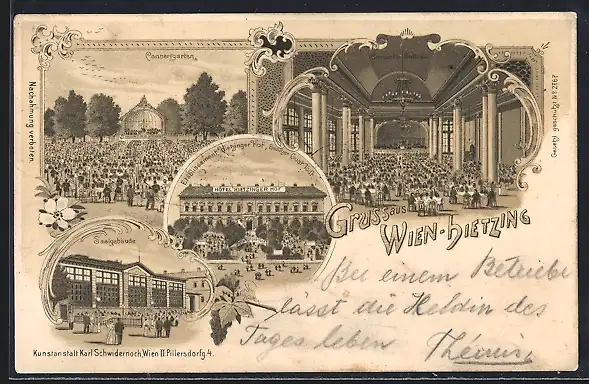 Concertgarten
Nachahmung verboten.
Gesetzl. geschützt № 2767
Etablissement „Hietzinger Hof“
HOTEL HIETZINGER HOF
Saalgebäude
Gruss aus
WIEN-HIETZING
Bei einem Betriebe
lässt die Heldin des
Tages leben
Kunstanstalt Karl Schwidernoch, Wien II. Pillersdorfg. 4.